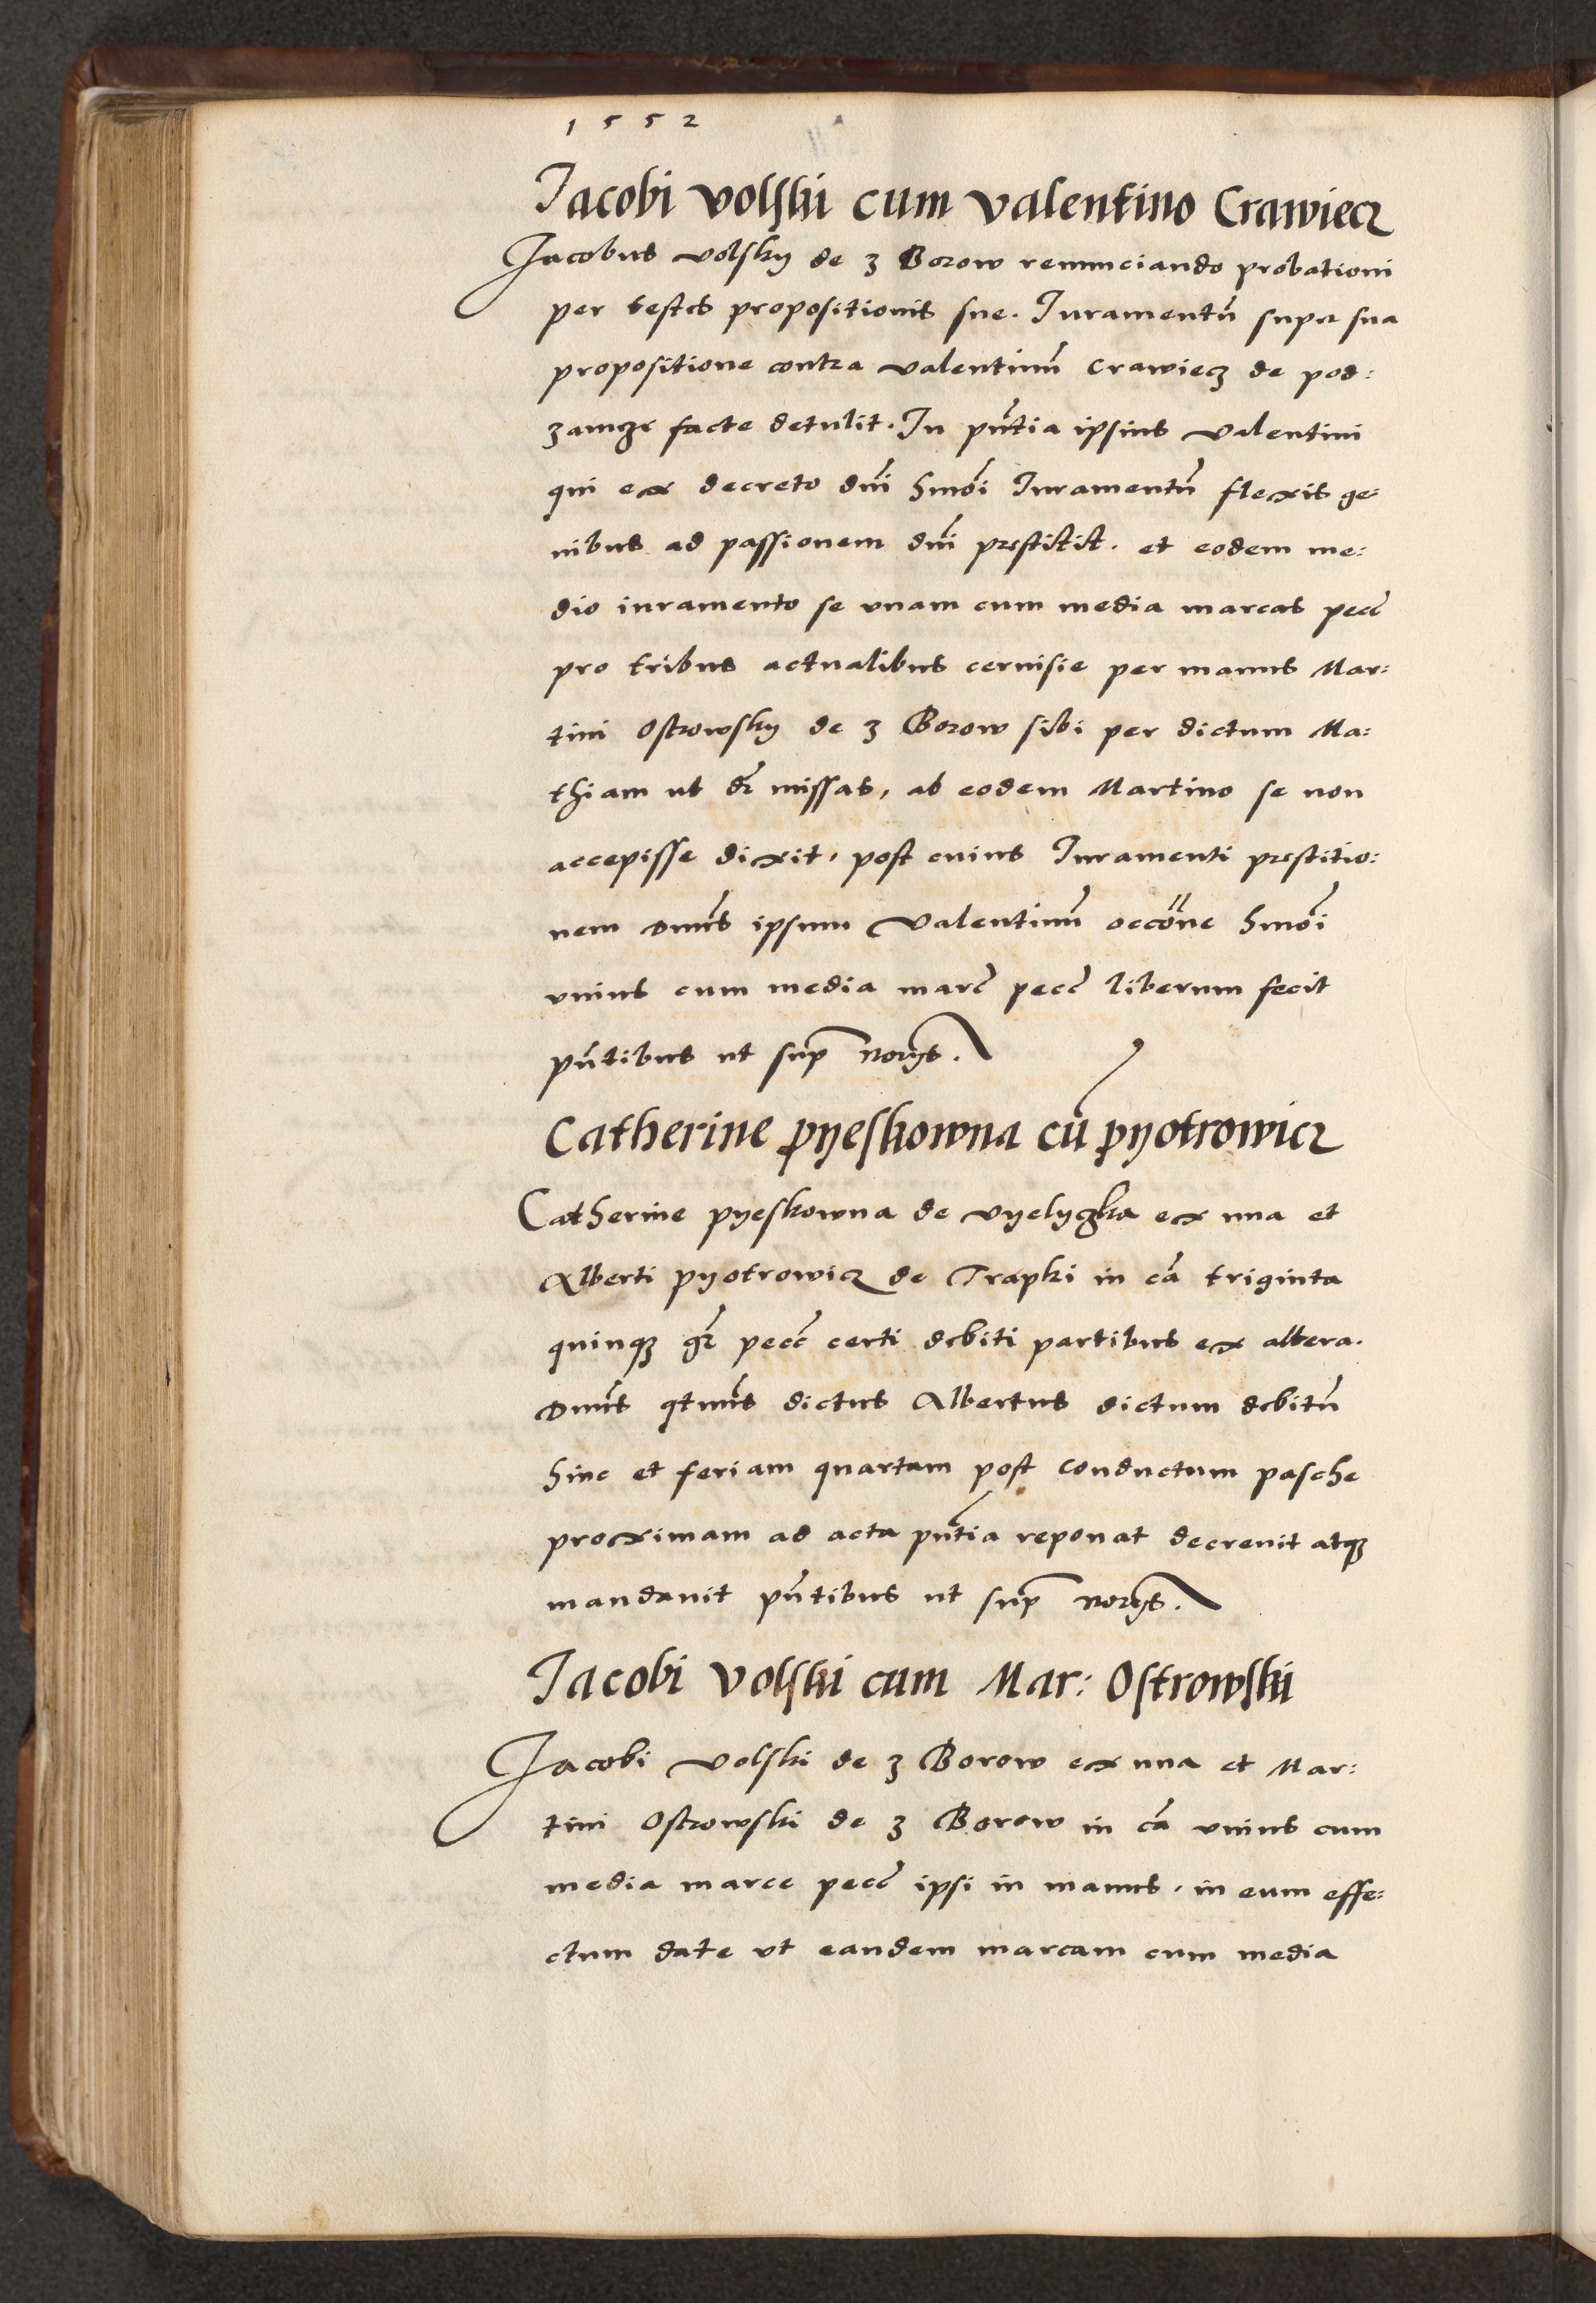 1552
Jacobi volski cum valentino Crawiecz
Jacobus volsky de z Borow renunciando probationi
per testes propositionis sue. Juramentū super sua
propositione contra valentinū Crawiecz de pod:
zamcze facte detulit. In pn̄tia ipsius valentini
qui ex decreto dn̄i hmōi Juramentū flexis ge:
nibus ad passionem dn̄i prestitit. et eodem me:
dio iuramento se unam cum media marcas pecc̄
pro tribus actualibus cervisie per manus Mar:
tini Ostrowsky de z Borow sibi per dictum Ma:
thiam ut dr̄ missas, ab eodem Martino se non
accepisse dixit, post cuius Juramenti prestitio:
nem Dnūs ipsum Valentinū occōne hmōi
unius cum media marc̄ pecc̄ liberum fecit
pn̄tibus ut sup̄ notȳs.
Catherine pyeskowna cū pyotrowicz
Catherine pyeskowna de vyelyczka ex una et
Alberti pyotrowicz de Trapki in cā triginta
quinqȝ gr̄ pecc̄ certi debiti partibus ex altera.
Dnūs qtnūs dictus Albertus dictum debitū
hinc et feriam quartam post conductum pasche
proximam ad acta pn̄tia reponat decrevit atqȝ
mandavit pn̄tibus ut sup̄ notȳs.
Jacobi Volski cum Mar: Ostrowski
Jacobi Volski de z Borow ex una et Mar:
tini Ostrowski de z Borow in cā unius cum
media marce pecc̄ ipsi in manus, in eum effe:
ctum date ut eandem marcam cum media